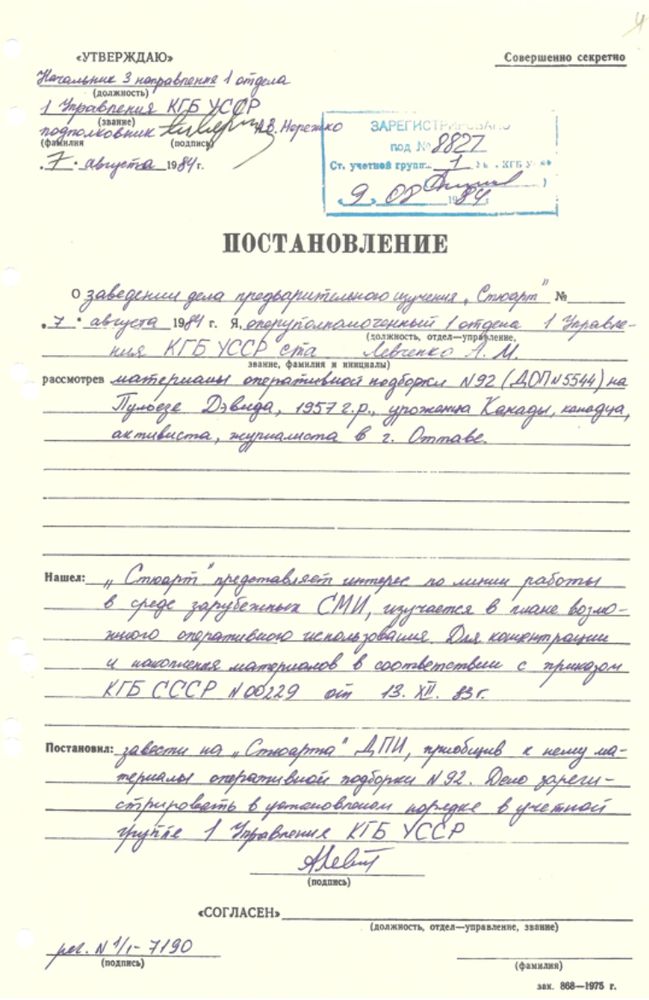 4
«УТВЕРЖДАЮ»
Совершенно секретно
Начальник 3 направления 1 отдела
(должность)
1 Управления КГБ УССР
(звание)
подполковник А.В. Нережко
(фамилия (подпись)
„ 7 " августа 1984 г.
ЗАРЕГИСТРИРОВАНО
под № 8827
Ст. учетной групп. 1 КГБ
« 9 » 08 1984
ПОСТАНОВЛЕНИЕ
О заведении дела предварительного изучения „Стюарт" №
„ 7 " августа 1984 г. Я, оперуполномоченный 1 отдела 1 Управле-
(должность, отдел—управление,
ния КГБ УССР Левченко А. М.
звание, фамилия и инициалы)
рассмотрев материалы оперативной подборки №92 (ДОП №5544) на
Пульезе Дэвида, 1957 г.р., уроженца Канады, канадца,
активиста, журналиста в г. Оттаве.
Нашел: „Стюарт" представляет интерес по линии работы
в среде зарубежных СМИ, изучается в плане возмо-
жного оперативного использования. Для концентрации
и накопления материалов в соответствии с приказом
КГБ СССР №00229 от 13. XII. 83 г.
Постановил: завести на „Стюарта" ДПИ, приобщив к нему ма-
териалы оперативной подборки №92. Дело зареги-
стрировать в установленом порядке в учетной
группе 1 Управления КГБ УССР
(подпись)
«СОГЛАСЕН»
(должность, отдел—управление, звание)
рег. № 1/1-7190
(подпись)
(фамилия)
зак. 868—1975 г.